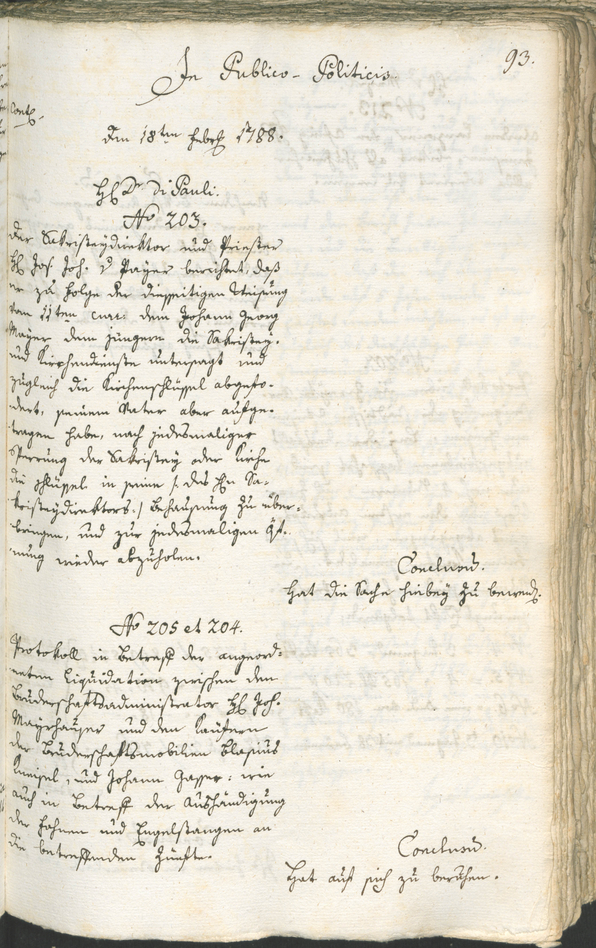 93.
In Publico-Politicis.
Cont.
den 18ten Febr. 1788.
H. Dr. di Pauli.
No 203.
Der Sakristeydirektor und Priester
H. Jos. Joh. v Payer berichtet, daß
er zu Folge der diesseitigen Weisung
vom 11ten curr. dem Johann Georg
Mayer dem jüngern die Sakristey-
und Kirchendienste untersagt und
zugleich die Kirchenschlüssel abgefo-
dert, seinem Vater aber aufge-
tragen habe, nach jedesmaliger
Sperrung der Sakristey oder Kirche
die Schlüssel in seine /: des Hn Sa-
kristeydirektors :/ Behausung zu über-
bringen, und zur jedesmaligen Öf-
nung wieder abzuholen.
Conclusum.
Hat die Sache hiebey zu bewend.
No 205 et 204.
Protokoll in Betreff der angeord-
neten Liquidation zwischen dem
Bruderschaftsadministrator H. Joh.
Mayrhauser und den Käufern
der Bruderschaftsmobilien Blasius
Kneisel, und Johann Gasser: wie
auch in Betreff der Aushändigung
der Fahnen und Engelstangen an
die betreffenden Zünfte.
Conclusum.
Hat auf sich zu beruhen.